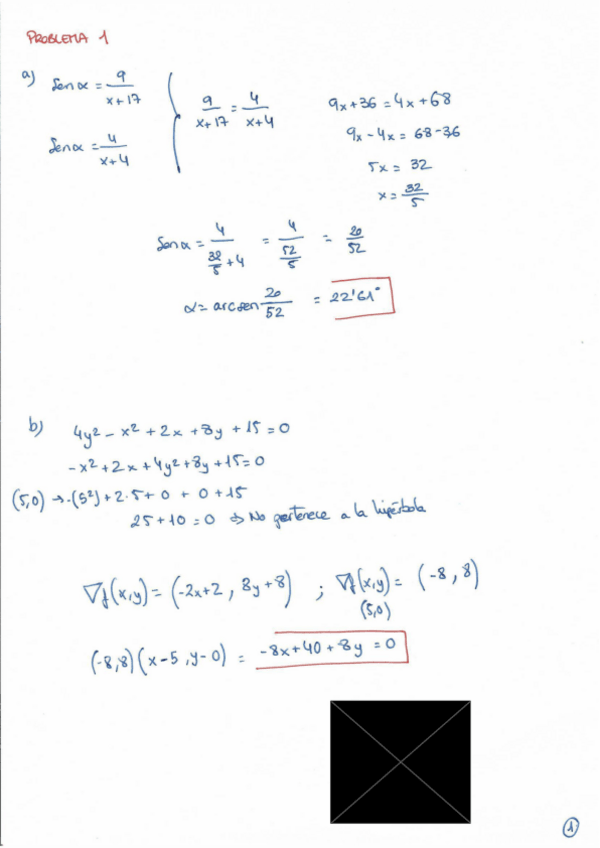 PROBLEMA 1
a) Sen α = 9/(x+17)
Sen α = 4/(x+4)
9/(x+17) = 4/(x+4)
9x+36 = 4x+68
9x-4x = 68-36
5x = 32
x = 32/5
Sen α = 4/(32/5 + 4) = 4/(52/5) = 20/52
α = arcsen 20/52 = 22'61°
b) 4y² - x² + 2x + 8y + 15 = 0
-x² + 2x + 4y² + 8y + 15 = 0
(5,0) → -(5²) + 2·5 + 0 + 0 + 15
25 + 10 = 0 ⇒ No pertenece a la hipérbola
∇f(x,y) = (-2x+2, 8y+8) ; ∇f(x,y) = (-8, 8)
(5,0)
(-8,8)(x-5, y-0) = -8x+40+8y = 0
1